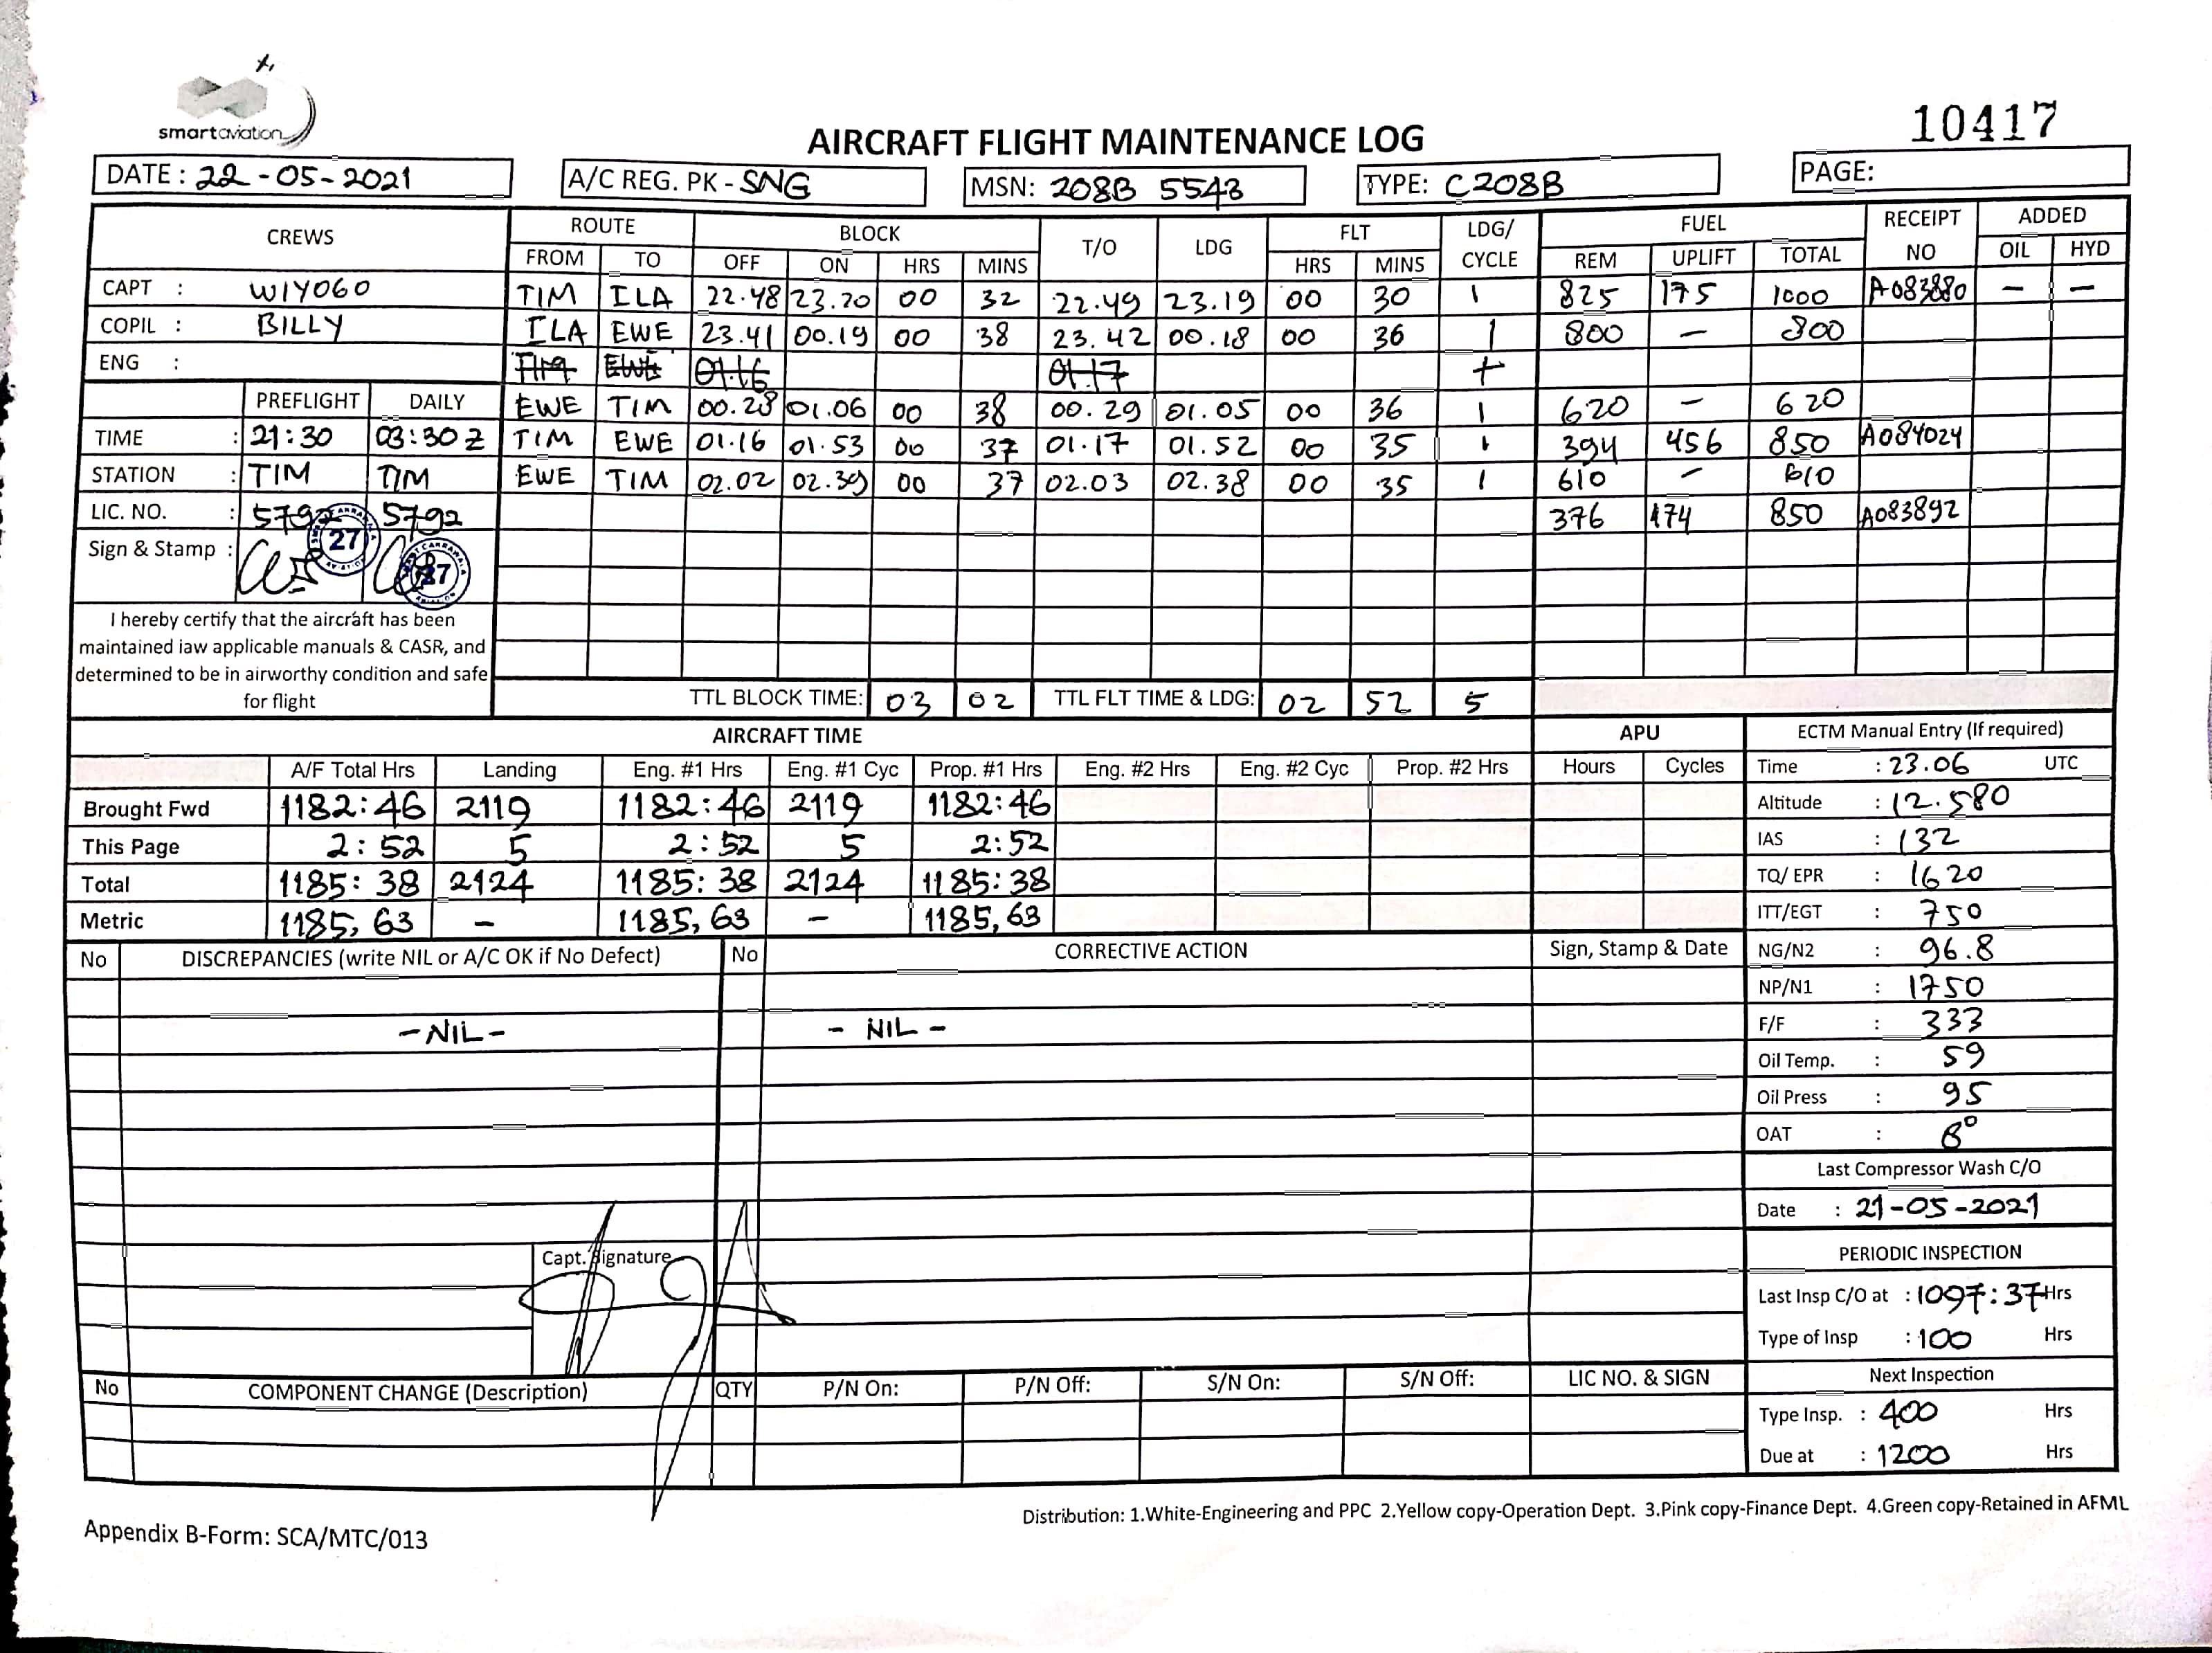 smartaviation
10417
AIRCRAFT FLIGHT MAINTENANCE LOG
DATE : 22 - 05 - 2021 A/C REG. PK - SNG MSN: 208B 5543 TYPE: C208B PAGE:
CREWS ROUTE BLOCK T/O LDG FLT LDG/ CYCLE FUEL RECEIPT NO ADDED
FROM TO OFF ON HRS MINS HRS MINS REM UPLIFT TOTAL OIL HYD
CAPT : WIYOGO TIM ILA 22.48 23.20 00 32 22.49 23.19 00 30 1 825 175 1000 A083880 — —
COPIL : BILLY ILA EWE 23.41 00.19 00 38 23.42 00.18 00 36 1 800 — 800
ENG : EWE 01.16 01.17
PREFLIGHT DAILY EWE TIM 00.28 01.06 00 38 00.29 01.05 00 36 1 620 — 620
TIME : 21:30 03:30 Z TIM EWE 01.16 01.53 00 37 01.17 01.52 00 35 1 394 456 850 A084024
STATION : TIM TIM EWE TIM 02.02 02.39 00 37 02.03 02.38 00 35 1 610 — 610
LIC. NO. : 5792 5792 376 474 850 A083892
Sign & Stamp : 27 27
I hereby certify that the aircraft has been
maintained iaw applicable manuals & CASR, and
determined to be in airworthy condition and safe
for flight
TTL BLOCK TIME: 03 02 TTL FLT TIME & LDG: 02 52 5
AIRCRAFT TIME APU ECTM Manual Entry (If required)
A/F Total Hrs Landing Eng. #1 Hrs Eng. #1 Cyc Prop. #1 Hrs Eng. #2 Hrs Eng. #2 Cyc Prop. #2 Hrs Hours Cycles Time : 23.06 UTC
Brought Fwd 1182:46 2119 1182:46 2119 1182:46 Altitude : 12.580
This Page 2:52 5 2:52 5 2:52 IAS : 132
Total 1185:38 2124 1185:38 2124 1185:38 TQ/ EPR : 1620
Metric 1185,63 – 1185,63 – 1185,63 ITT/EGT : 750
No DISCREPANCIES (write NIL or A/C OK if No Defect) No CORRECTIVE ACTION Sign, Stamp & Date NG/N2 : 96.8
NP/N1 : 1750
- NIL - - NIL - F/F : 333
Oil Temp. : 59
Oil Press : 95
OAT : 8°
Last Compressor Wash C/O
Date : 21-05-2021
Capt. Signature
PERIODIC INSPECTION
Last Insp C/O at : 1097:37 Hrs
Type of Insp : 100 Hrs
No COMPONENT CHANGE (Description) QTY P/N On: P/N Off: S/N On: S/N Off: LIC NO. & SIGN Next Inspection
Type Insp. : 400 Hrs
Due at : 1200 Hrs
Distribution: 1.White-Engineering and PPC 2.Yellow copy-Operation Dept. 3.Pink copy-Finance Dept. 4.Green copy-Retained in AFML
Appendix B-Form: SCA/MTC/013